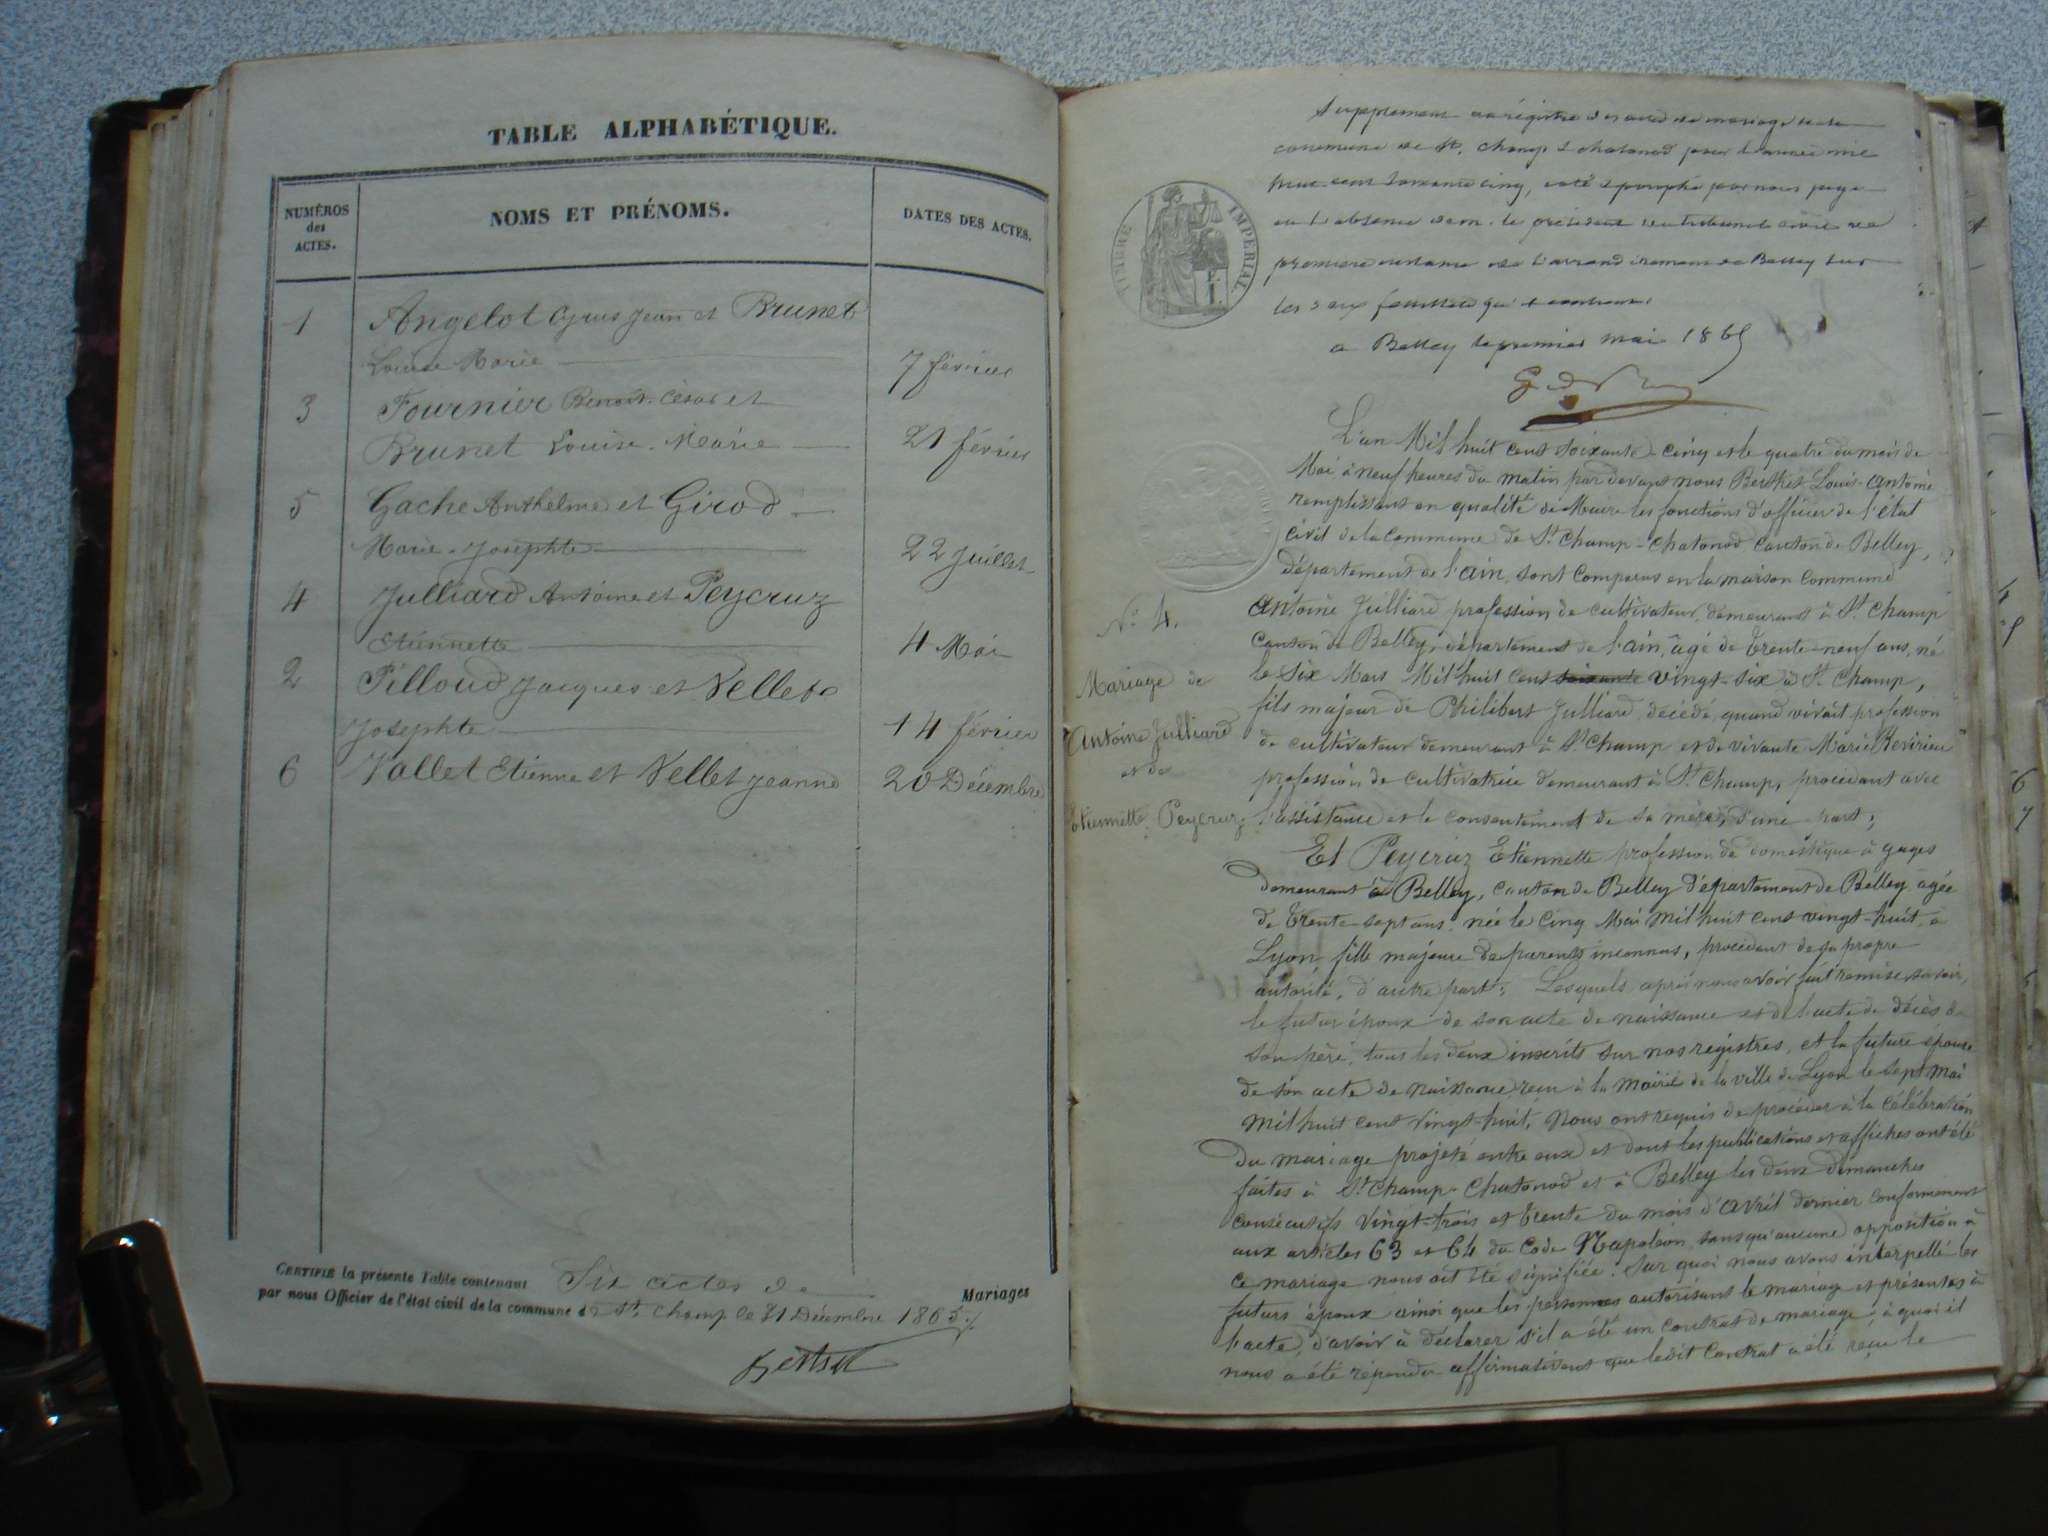 TABLE ALPHABÉTIQUE.
NUMÉROS
des
ACTES.
NOMS ET PRÉNOMS.
DATES DES ACTES.
1 Angelot Cyrus Jean et Brunet
Louise Marie 7 février
3 Fournier Benoit-César et
Brunet Louise-Marie 21 février
5 Gache Anthelme et Girod
Marie-Josephte 22 Juillet
4 Julliard Antoine et Peycruz
Etiennette 4 Mai
2 Pilloud Jacques et Vellet
Josephte 14 février
6 Vallet Etienne et Vellet Jeanne 20 Décembre
CERTIFIÉ la présente Table contenant Six actes de Mariages
par nous Officier de l'état civil de la commune de St. Champ le 31 Décembre 1865
TIMBRE IMPÉRIAL
Supplement au régistre des actes de mariage de la
commune de St. Champ & chatonod pour l'année mil
huit cent soixante cinq, coté & paraphé par nous juge
en l'absence de m. le président du tribunal civil de
première instance de l'arrondissement de Belley sur
les deux feuillets qu'il contient.
a Belley le premier mai 1865
L'an Mil huit cent soixante-cinq et le quatre du mois de
Mai à neuf heures du matin par devant nous Berthet Louis-Antoine
remplissant en qualité de Maire les fonctions d'officier de l'état
civil de la commune de St. Champ-Chatonod canton de Belley,
département de l'ain, sont comparus en la maison commune
No. 4.
Mariage de
Antoine Julliard
et de
Etiennette Peycruz
Antoine Julliard profession de cultivateur, demeurant à St. Champ
canton de Belley, département de l'ain, âgé de trente-neuf ans, né
le Six Mars Mil huit cent soixante vingt-six à St. Champ,
fils majeur de Philibert Julliard, décédé, quand vivait profession
de cultivateur demeurant à St. Champ et de vivante Marie
profession de cultivatrice demeurant à St. Champ, procédant avec
l'assistance et le consentement de sa mère, d'une part;
Et Peycruz Etiennette profession de domestique à gages
demeurant à Belley, canton de Belley Département de Belley âgée
de trente-sept ans, née le cinq Mai mil huit cent vingt-huit, à
Lyon, fille majeure de parents inconnus, procédant de sa propre
autorité, d'autre part; Lesquels après nous avoir fait remise, savoir,
le futur époux de son acte de naissance et de l'acte de décès de
son père, tous les deux inscrits sur nos registres, et la future épouse
de son acte de naissance reçu à la mairie de la ville de Lyon le sept mai
mil huit cent vingt-huit, Nous ont requis de procéder à la célébration
du mariage projeté entre eux et dont les publications et affiches ont été
faites à St. Champ-Chatonod et à Belley les deux dimanches
consécutifs vingt-trois et trente du mois d'avril dernier conformément
aux articles 63 et 64 du Code Napoléon, sans qu'aucune opposition à
ce mariage nous ait été signifiée. Sur quoi nous avons interpellé les
futurs époux ainsi que les personnes autorisant le mariage et présentes à
l'acte, d'avoir à déclarer s'il a été un contrat de mariage, à quoi il
nous a été répondu affirmativement que ledit Contrat a été reçu le